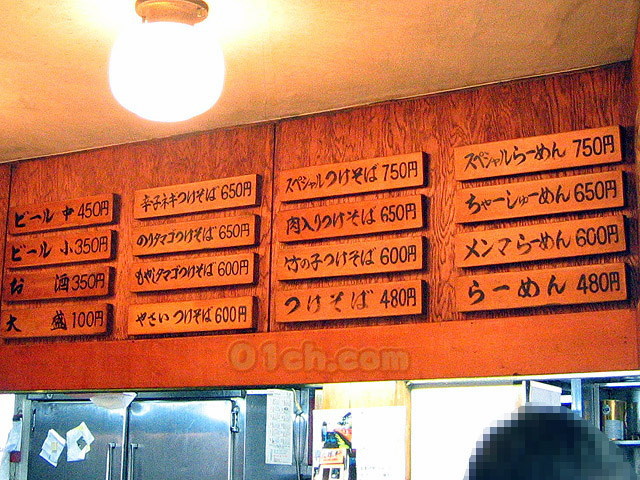 スペシャルらーめん 750円
ちゃーしゅーめん 650円
メンマらーめん 600円
らーめん 480円
スペシャルつけそば 750円
肉入りつけそば 650円
竹の子つけそば 600円
つけそば 480円
辛子ネギつけそば 650円
のりタマゴつけそば 650円
もやしタマゴつけそば 600円
やさいつけそば 600円
ビール 中 450円
ビール 小 350円
お酒 350円
大盛 100円
01ch.com